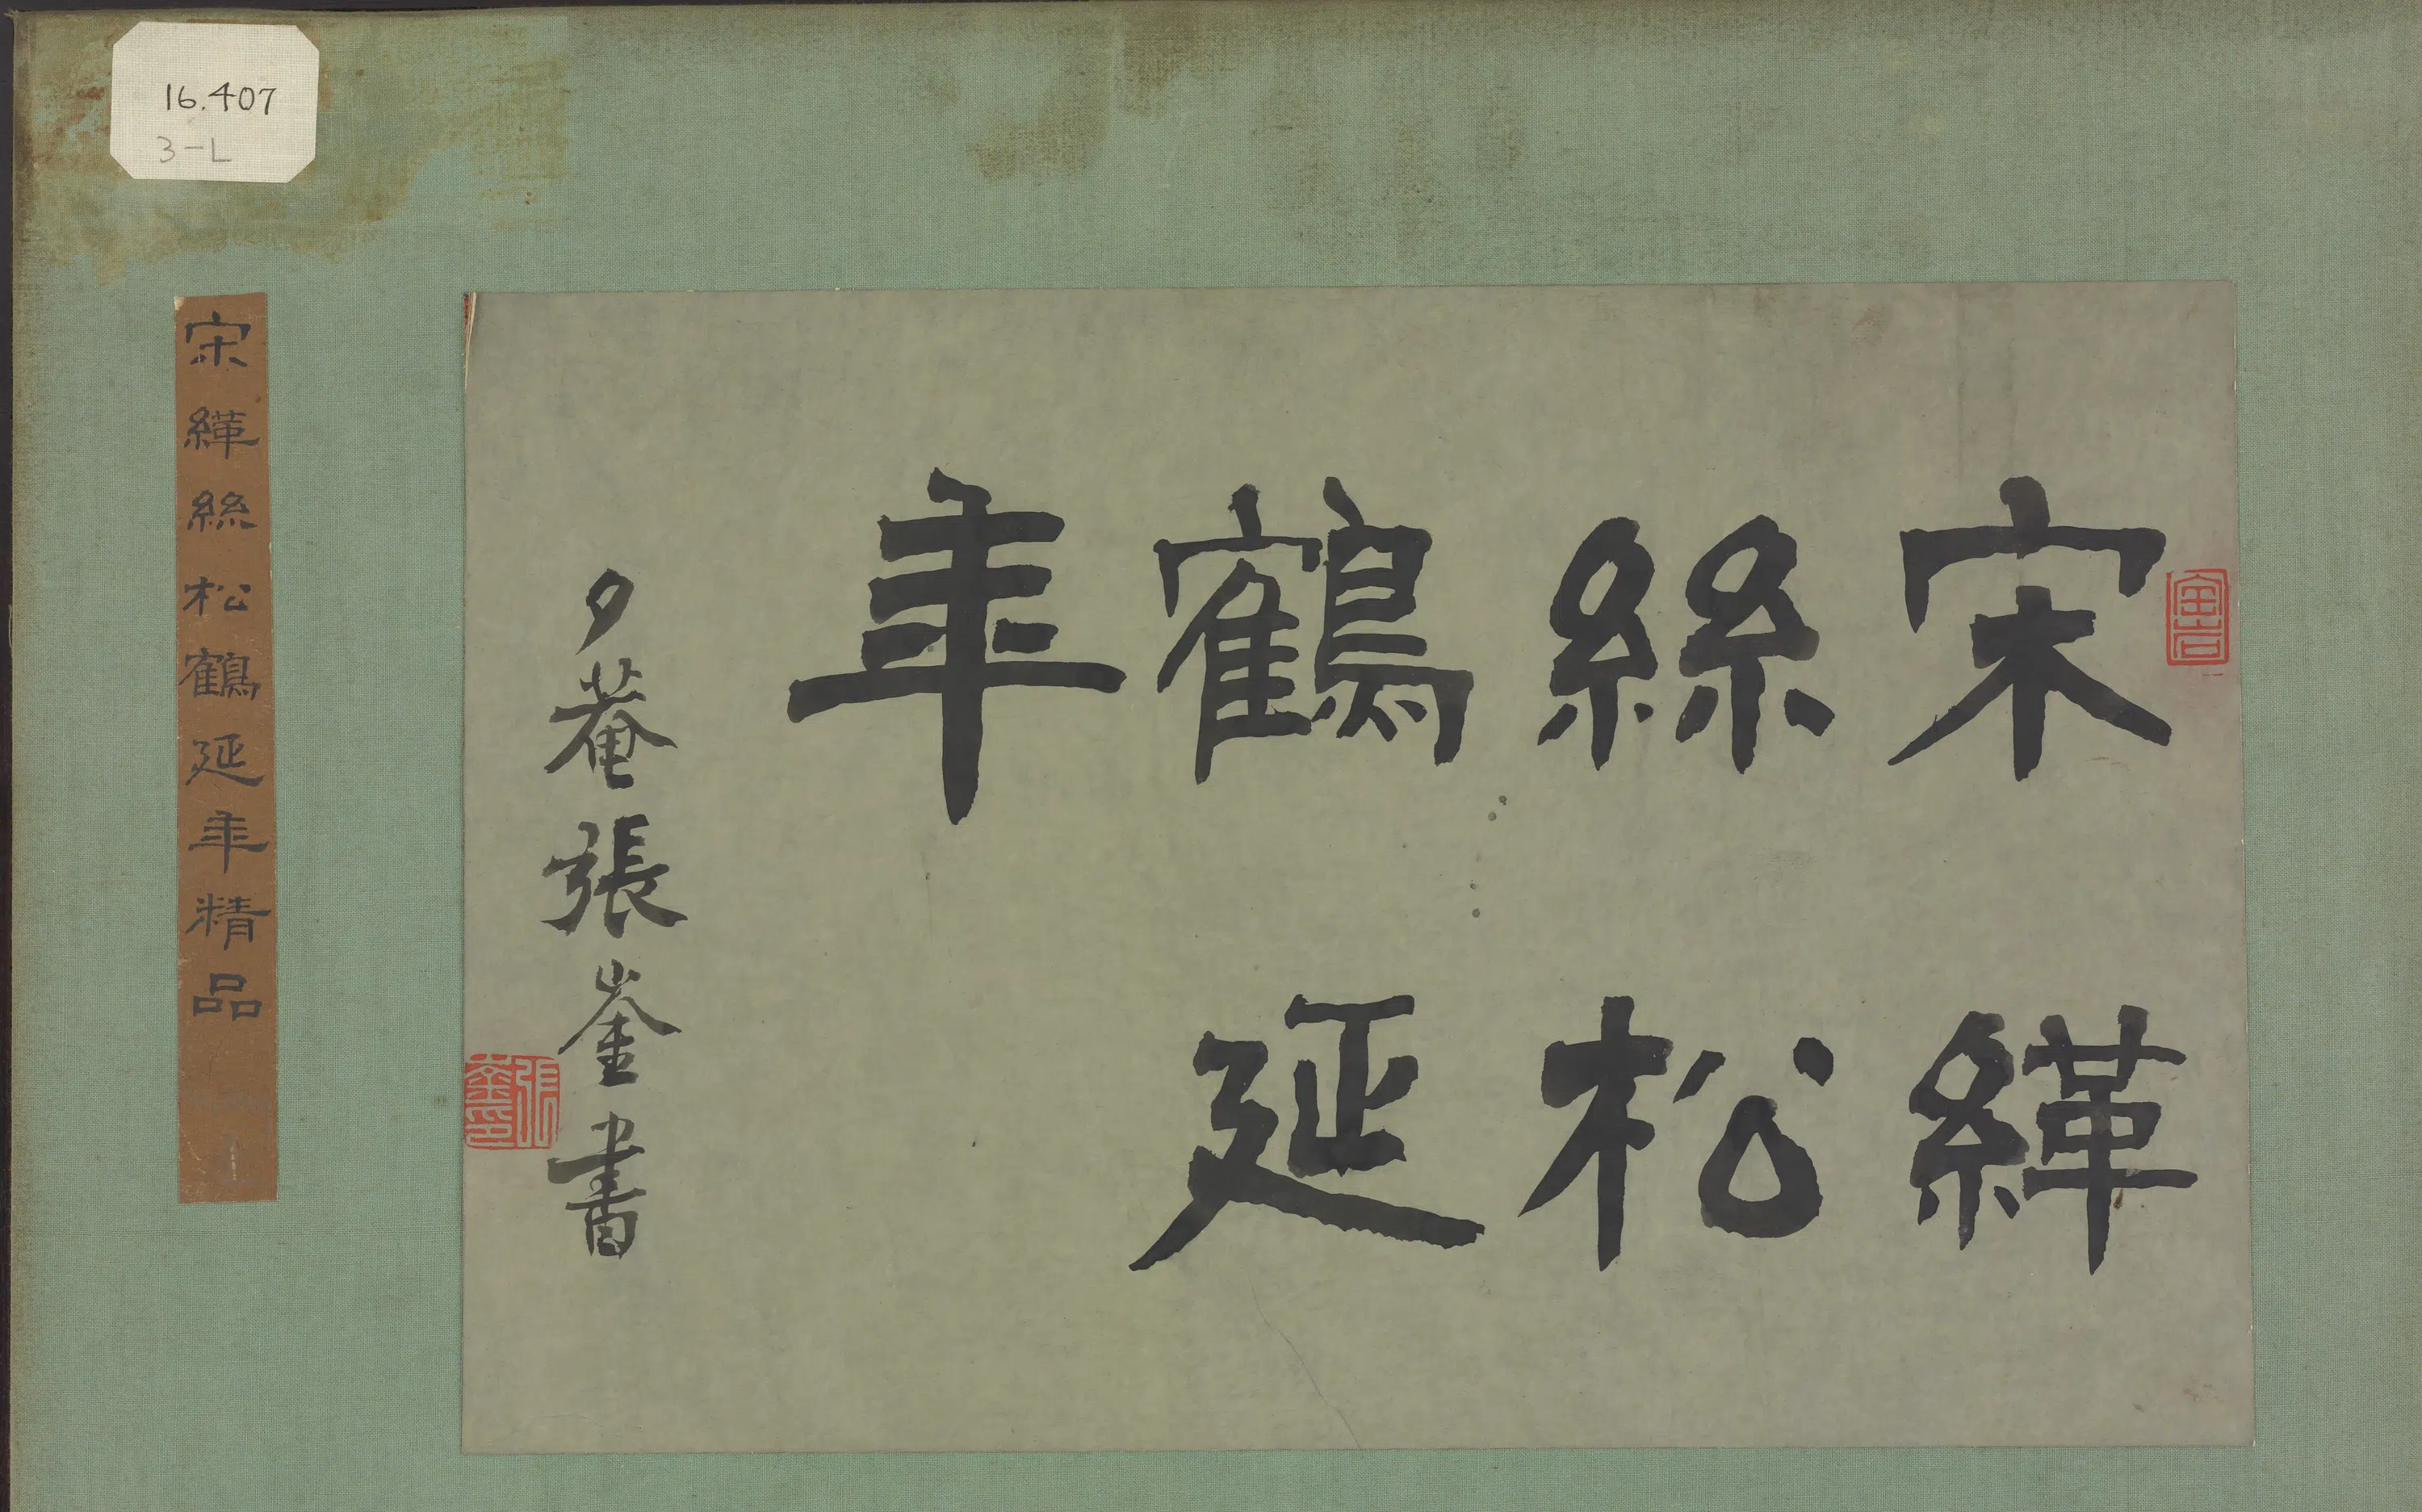 16.407
3-L
宋緙
絲松
鶴延
年
夕菴張崟書
張崟印
宋緙絲松鶴延年精品